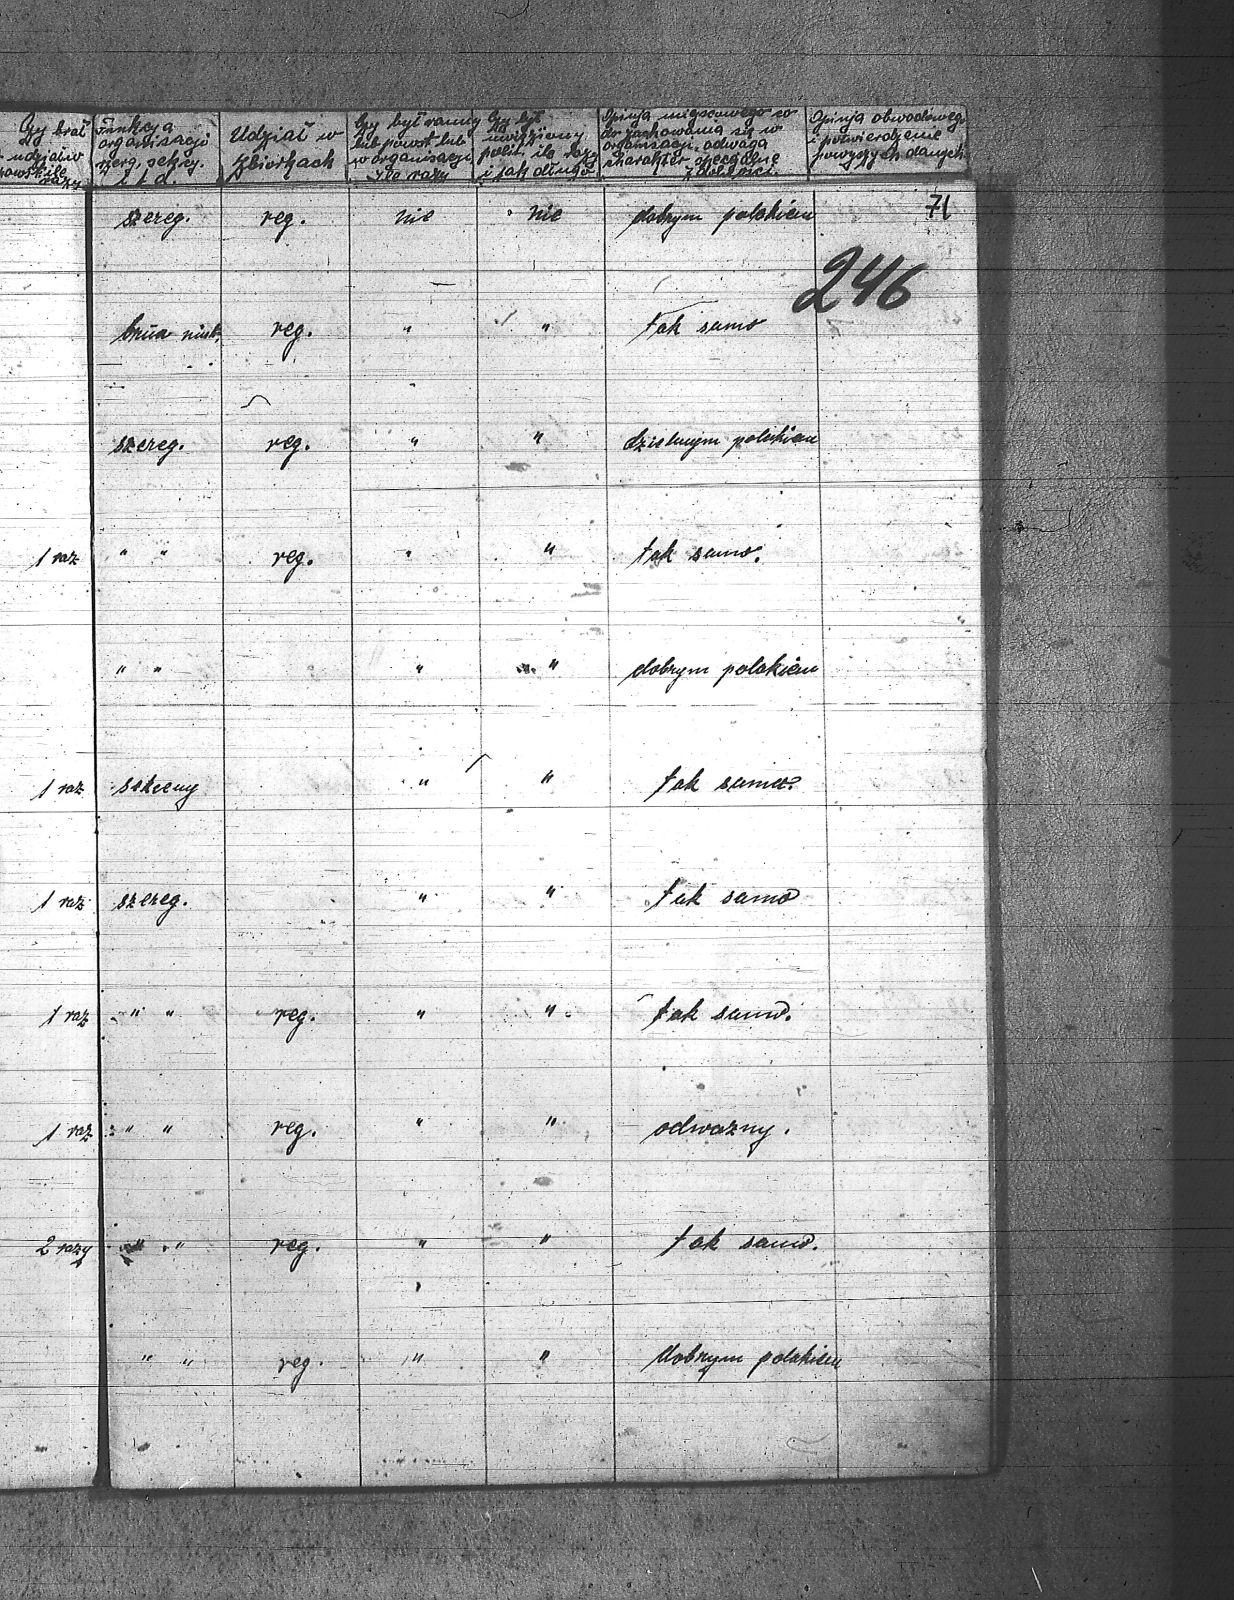 Czy brał udział w powst. ile razy
Funkcja organizacji szereg. sekcy. i t.d.
Udział w Zbiórkach
Czy był ranny lub powst. lub w organizacji Ile razy
Czy był uwięziony polit. ile razy i jak długo
Opinja miejscowego co do zachowania się w organizacji, odwaga charakter specjalne zdolności.
Opinja obwodowego i potwierdzenie powyższych danych
71
szereg. reg. nie nie dobrym polakiem
246
reg. " " tak samo
szereg. reg. " " dzielnym polakiem
1 raz " " reg. " " tak samo.
" " " " dobrym polakiem
1 raz sekcyny " " tak samo.
1 raz szereg. " " tak samo
1 raz " " reg. " " tak samo.
1 raz " " reg. " " odważny.
2 razy " " reg. " " tak samo.
" " reg. " " dobrym polakiem